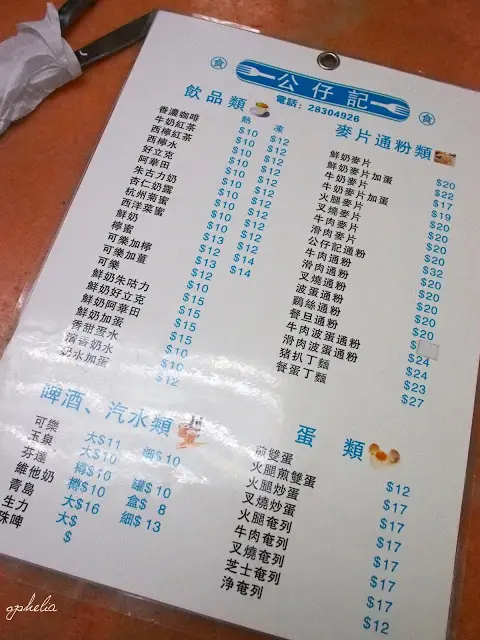 食 公仔記 食
電話：28304926
飲品類
熱 凍
香濃咖啡 $10 $12
牛奶紅茶 $10 $12
西檸紅茶 $10 $12
西檸水 $10 $12
好立克 $10 $12
阿華田 $10 $12
朱古力奶 $10 $12
杏仁奶露 $10 $12
杭州菊蜜 $10 $12
西洋菜蜜 $10 $12
鮮奶 $13 $12
檸蜜 $12 $14
可樂加檸 $13 $14
可樂加薑 $12
可樂 $10
鮮奶朱咕力 $15
鮮奶好立克 $15
鮮奶阿華田 $15
鮮奶加蛋 $15
香甜蛋水 $10
滴香奶水 $10
奶水加蛋 $12
啤酒、汽水類
可樂 大$11 細$10
玉泉 大$10
芬達 樽$10 罐$10
維他奶 樽$10 盒$ 8
青島 大$16 細$13
生力 大$
珠啤 $
麥片通粉類
鮮奶麥片 $20
鮮奶麥片加蛋 $22
牛奶麥片 $17
牛奶麥片加蛋 $19
火腿麥片 $20
叉燒麥片 $20
牛肉麥片 $20
滑肉麥片 $20
公仔記通粉 $32
牛肉通粉 $20
滑肉通粉 $20
叉燒通粉 $20
波蛋通粉 $20
鷄絲通粉 $20
餐旦通粉 $
牛肉波蛋通粉 $24
滑肉波蛋通粉 $24
豬扒丁麵 $23
餐蛋丁麵 $27
蛋類
煎雙蛋 $12
火腿煎雙蛋 $17
火腿炒蛋 $17
叉燒炒蛋 $17
火腿奄列 $17
牛肉奄列 $17
叉燒奄列 $17
芝士奄列 $17
淨奄列 $12
ophelia